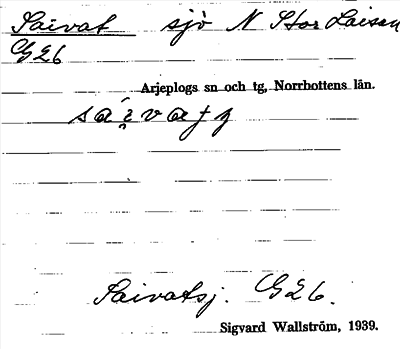 Saivat sjö N Stor Laisan
G26
Arjeplogs sn och tg, Norrbottens län.
Saivatsj. G26.
Sigvard Wallström, 1939.